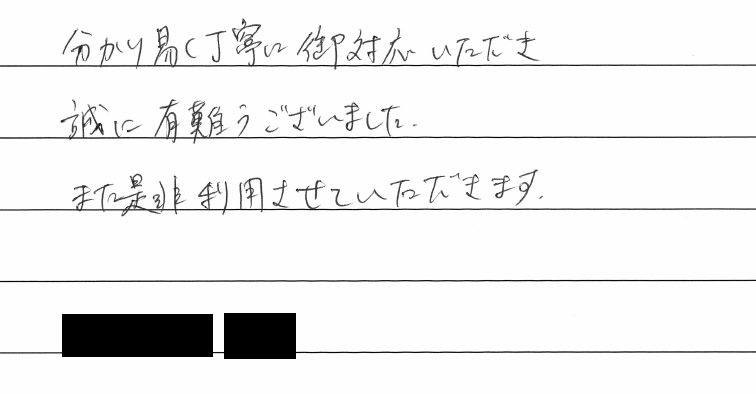 分かり易く丁寧に御対応いただき
誠に有難うございました.
また是非利用させていただきます.